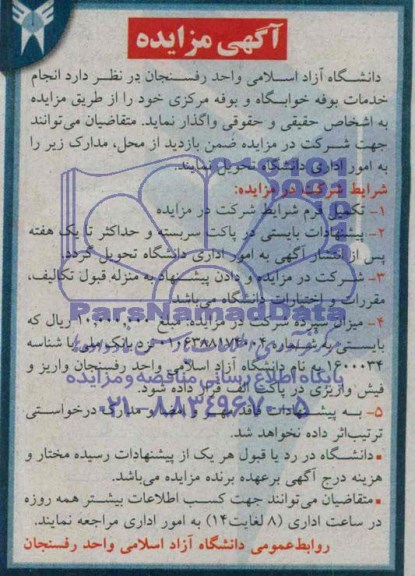 آگهی مزایده
دانشگاه آزاد اسلامی واحد رفسنجان در نظر دارد انجام
خدمات بوفه خوابگاه و بوفه مرکزی خود را از طریق مزایده
به اشخاص حقیقی و حقوقی واگذار نماید. متقاضیان می‌توانند
جهت شرکت در مزایده ضمن بازدید از محل، مدارک زیر را
به امور اداری دانشگاه تحویل نمایند.
شرایط شرکت در مزایده:
۱- تکمیل فرم شرایط شرکت در مزایده
۲- پیشنهادات بایستی در پاکت سربسته و حداکثر تا یک هفته
پس از انتشار آگهی به امور اداری دانشگاه تحویل گردد.
۳- شرکت در مزایده و دادن پیشنهاد به منزله قبول تکالیف،
مقررات و اختیارات دانشگاه می‌باشد.
ParsNamadData
۴- میزان سپرده شرکت در مزایده: مبلغ ۱۰,۰۰۰,۰۰۰ ریال که
بایستی به شماره نزد بانک ملی با شناسه
۱۶۰۰۰۳۴ به نام دانشگاه آزاد اسلامی واحد رفسنجان واریز و
پایگاه اطلاع رسانی مناقصه و مزایده
فیش واریزی در پاکت الف قرار داده شود.
۵- به پیشنهادات فاقد مهر و امضا و مدارک درخواستی
۰۲۱-۸۸۳۴۹۶۷۰-۵
ترتیب‌اثر داده نخواهد شد.
▪ دانشگاه در رد یا قبول هر یک از پیشنهادات رسیده مختار و
هزینه درج آگهی برعهده برنده مزایده می‌باشد.
▪ متقاضیان می‌توانند جهت کسب اطلاعات بیشتر همه روزه
در ساعت اداری (۸ لغایت۱۴) به امور اداری مراجعه نمایند.
روابط‌عمومی دانشگاه آزاد اسلامی واحد رفسنجان